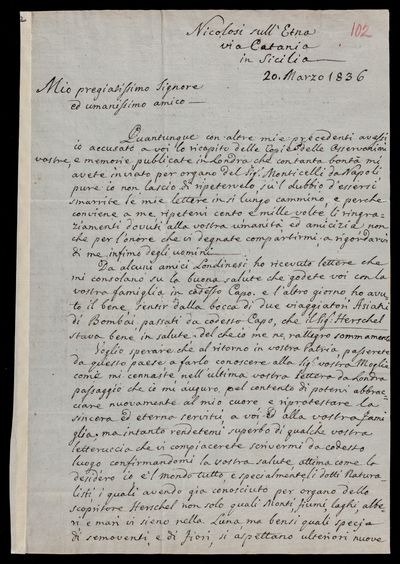 Nicolosi sull'Etna
102
via Catania
in Sicilia
20. Marzo 1836
Mio pregiatissimo Signore
ed umanissimo amico
Quantunque con altre mie precedenti avessi
io accusato a voi lo ricapito delle Copie delle Osservazioni
vostre, e memorie publicate in Londra che con tanta bontà mi
avete inviato per organo del Sig. Monticelli da Napoli
pure io non lascio di ripetervelo sul dubbio d'essersi
smarrite le mie lettere in sì lungo cammino e perche
conviene a me, ripetervi cento e mille volte li ringra-
ziamenti dovuti alla vostra umanità ed amicizia, non
che per l'onore che vi degnate compartirmi a rigordarvi
di me infimo degli uomini
Da alcuni amici Londinesi ho ricevuto lettere che
mi consolano su la buona salute che godete voi con la
vostra famiglia in codesto Capo, e l'altro giorno ho avu-
to il bene, sentir dalla bocca di due viaggiatori Asiati
di Bombai passati da codesto Capo, che il Sig. Herschel
stava bene in salute del che io me ne rallegro sommamente
Voglio sperare che al ritorno in vostra Patria, passerete
da questo paese a farlo conoscere alla Sig. vostra Moglie
come mi cennaste nell'ultima vostra lettera da Londra
passaggio che io mi auguro, pel contento di potervi abbrac-
ciare nuovamente al mio cuore e riprotestare la
sincera ed eterna servitù a voi ed alla vostra fami
glia, ma intanto rendetemi superbo di qualche vostra
letteruccia che vi compiacerete scrivermi da codesto
luogo confirmandomi la vostra salute, ottima come la
desidero io e'l mondo tutto, e specialmente li dotti Natura-
listi, i quali avendo già conosciuto per organo dello
scopritore Herschel non solo quali Monti, fiumi, laghi, albe-
ri, e mari vi sieno nella Luna, ma bensi quali specie
di semoventi, e di fiori, si aspettano ulteriori nuove